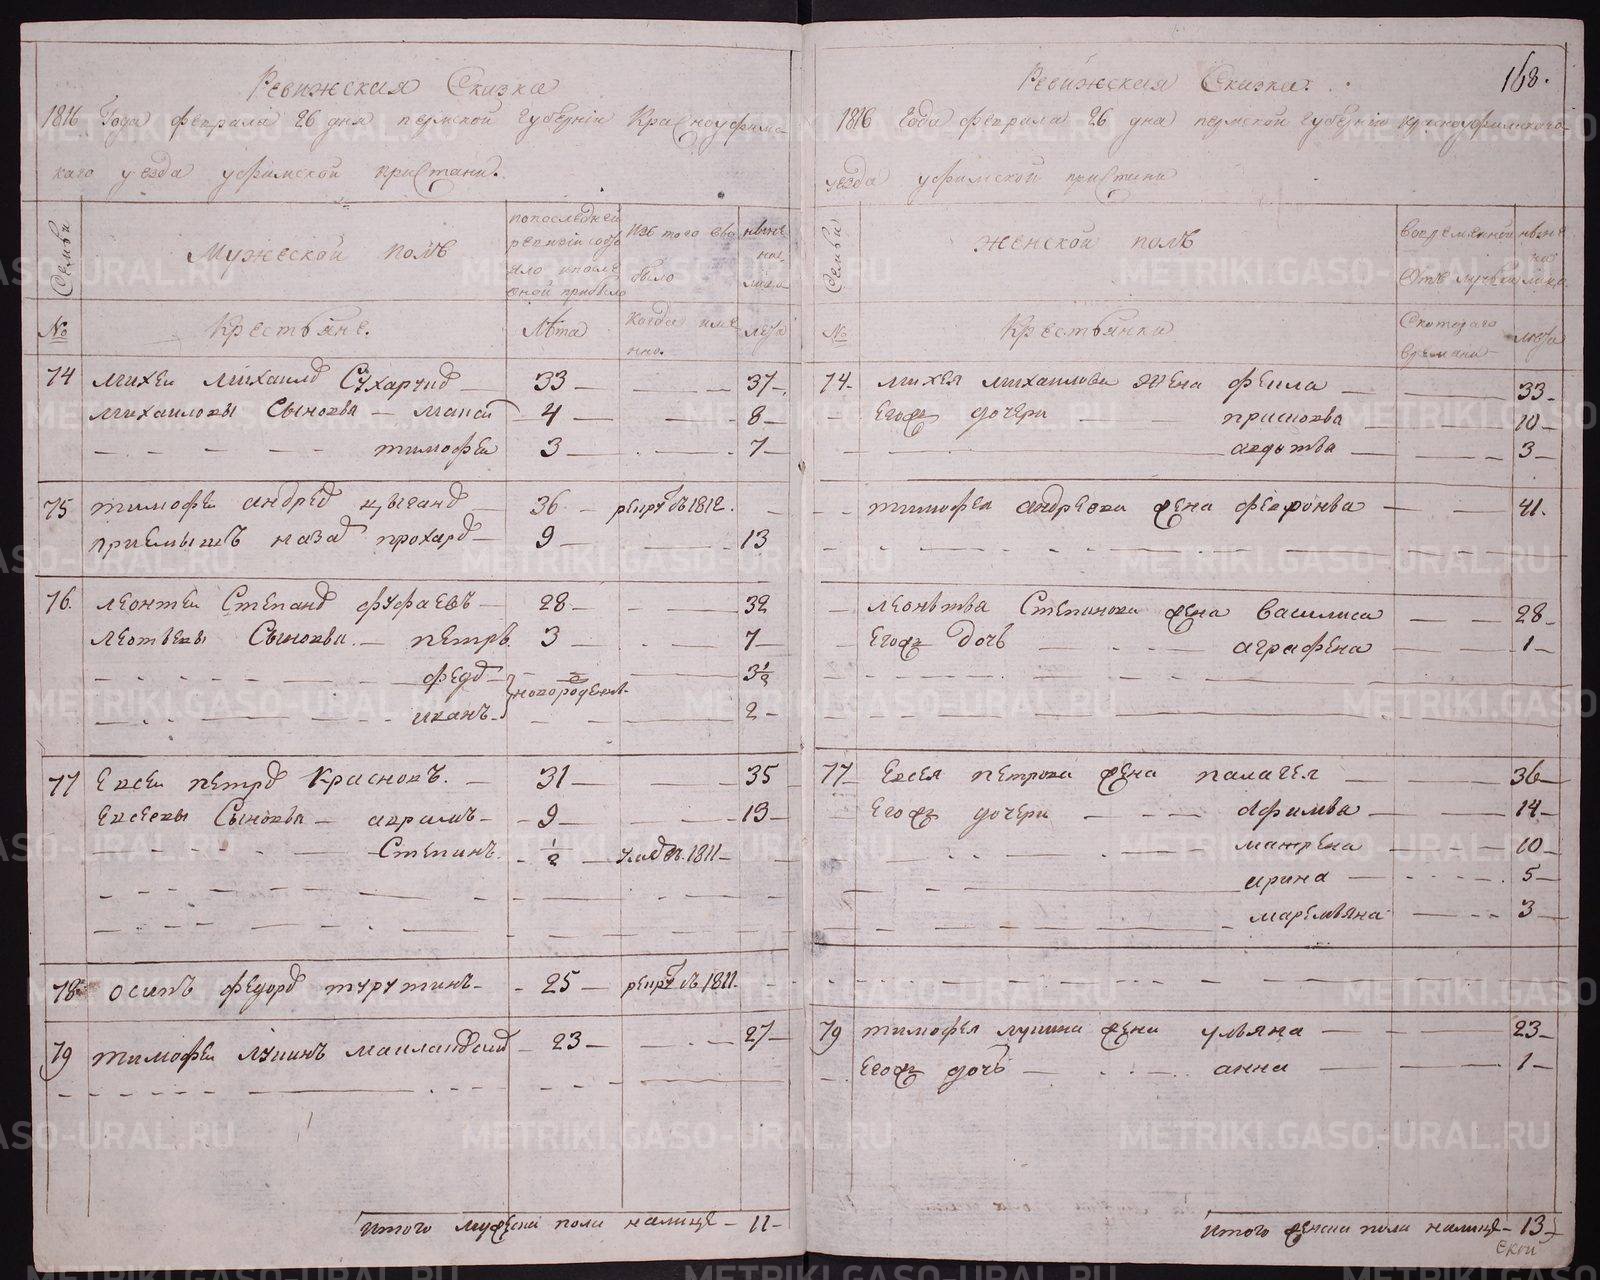 Ревижская Сказка
1816 Года февраля 26 дня пермской губернiи Красноуфимс
каго уезда уфимской пристани.
Семьи
Мужеской полъ
попоследней
ревизiи состо
яло ипосле
оной прибыло
Изъ того
было
ныне
на
лицо
№
Крестьяне.
Лѣта
Когда имя
нно.
лета
74 михеи михаилд Сухаруд 33 37
михаиловы Сыновья 4 8
тимофеи 3 7
75 тимофеи андреd цыганd 36 рекрут 1812.
прiемышъ назаd прохарd 9 13
76. леонтеи Степанd фуфаевъ 28 32
леотьевы Сыновья. петръ 3 7
федd новорожденъ 3½
иванъ 2
77 Евсеи петрd Красновъ. 31 35
Евсеевы Сыновья аврамъ 9 13
Степанъ ½ 1811
78 осипъ федорd турутинъ 25 рекрут 1811.
79 тимофеи лупинъ 23 27
Итого мужеска пола налице 11
168.
Ревижская Сказка:
1816 Года февраля 26 дня пермской губернiи красноуфимскаго
уезда уфимской пристани
Семьи
женской полъ
вовременной
отлучьки
ныне
на
лицо
№
Крестьянки
Скотораго
времяни
лета
74. михея михаилова жена феkла 33
Егож дочери присковья 10
авдотья 3
тимофея андреева жена февронья 41.
леонтья Степанова жена василиса 28
Егож дочь аграфена 1
77 Евсея петрова жена палагея 36
Егож дочери Афимья 14
матрена 10
ирина 5
маремьяна 3
79 тимофея лупина жена ульяна 23
Егож дочь анна 1
Итого женска пола налице 13
METRIKI.GASO-URAL.RU